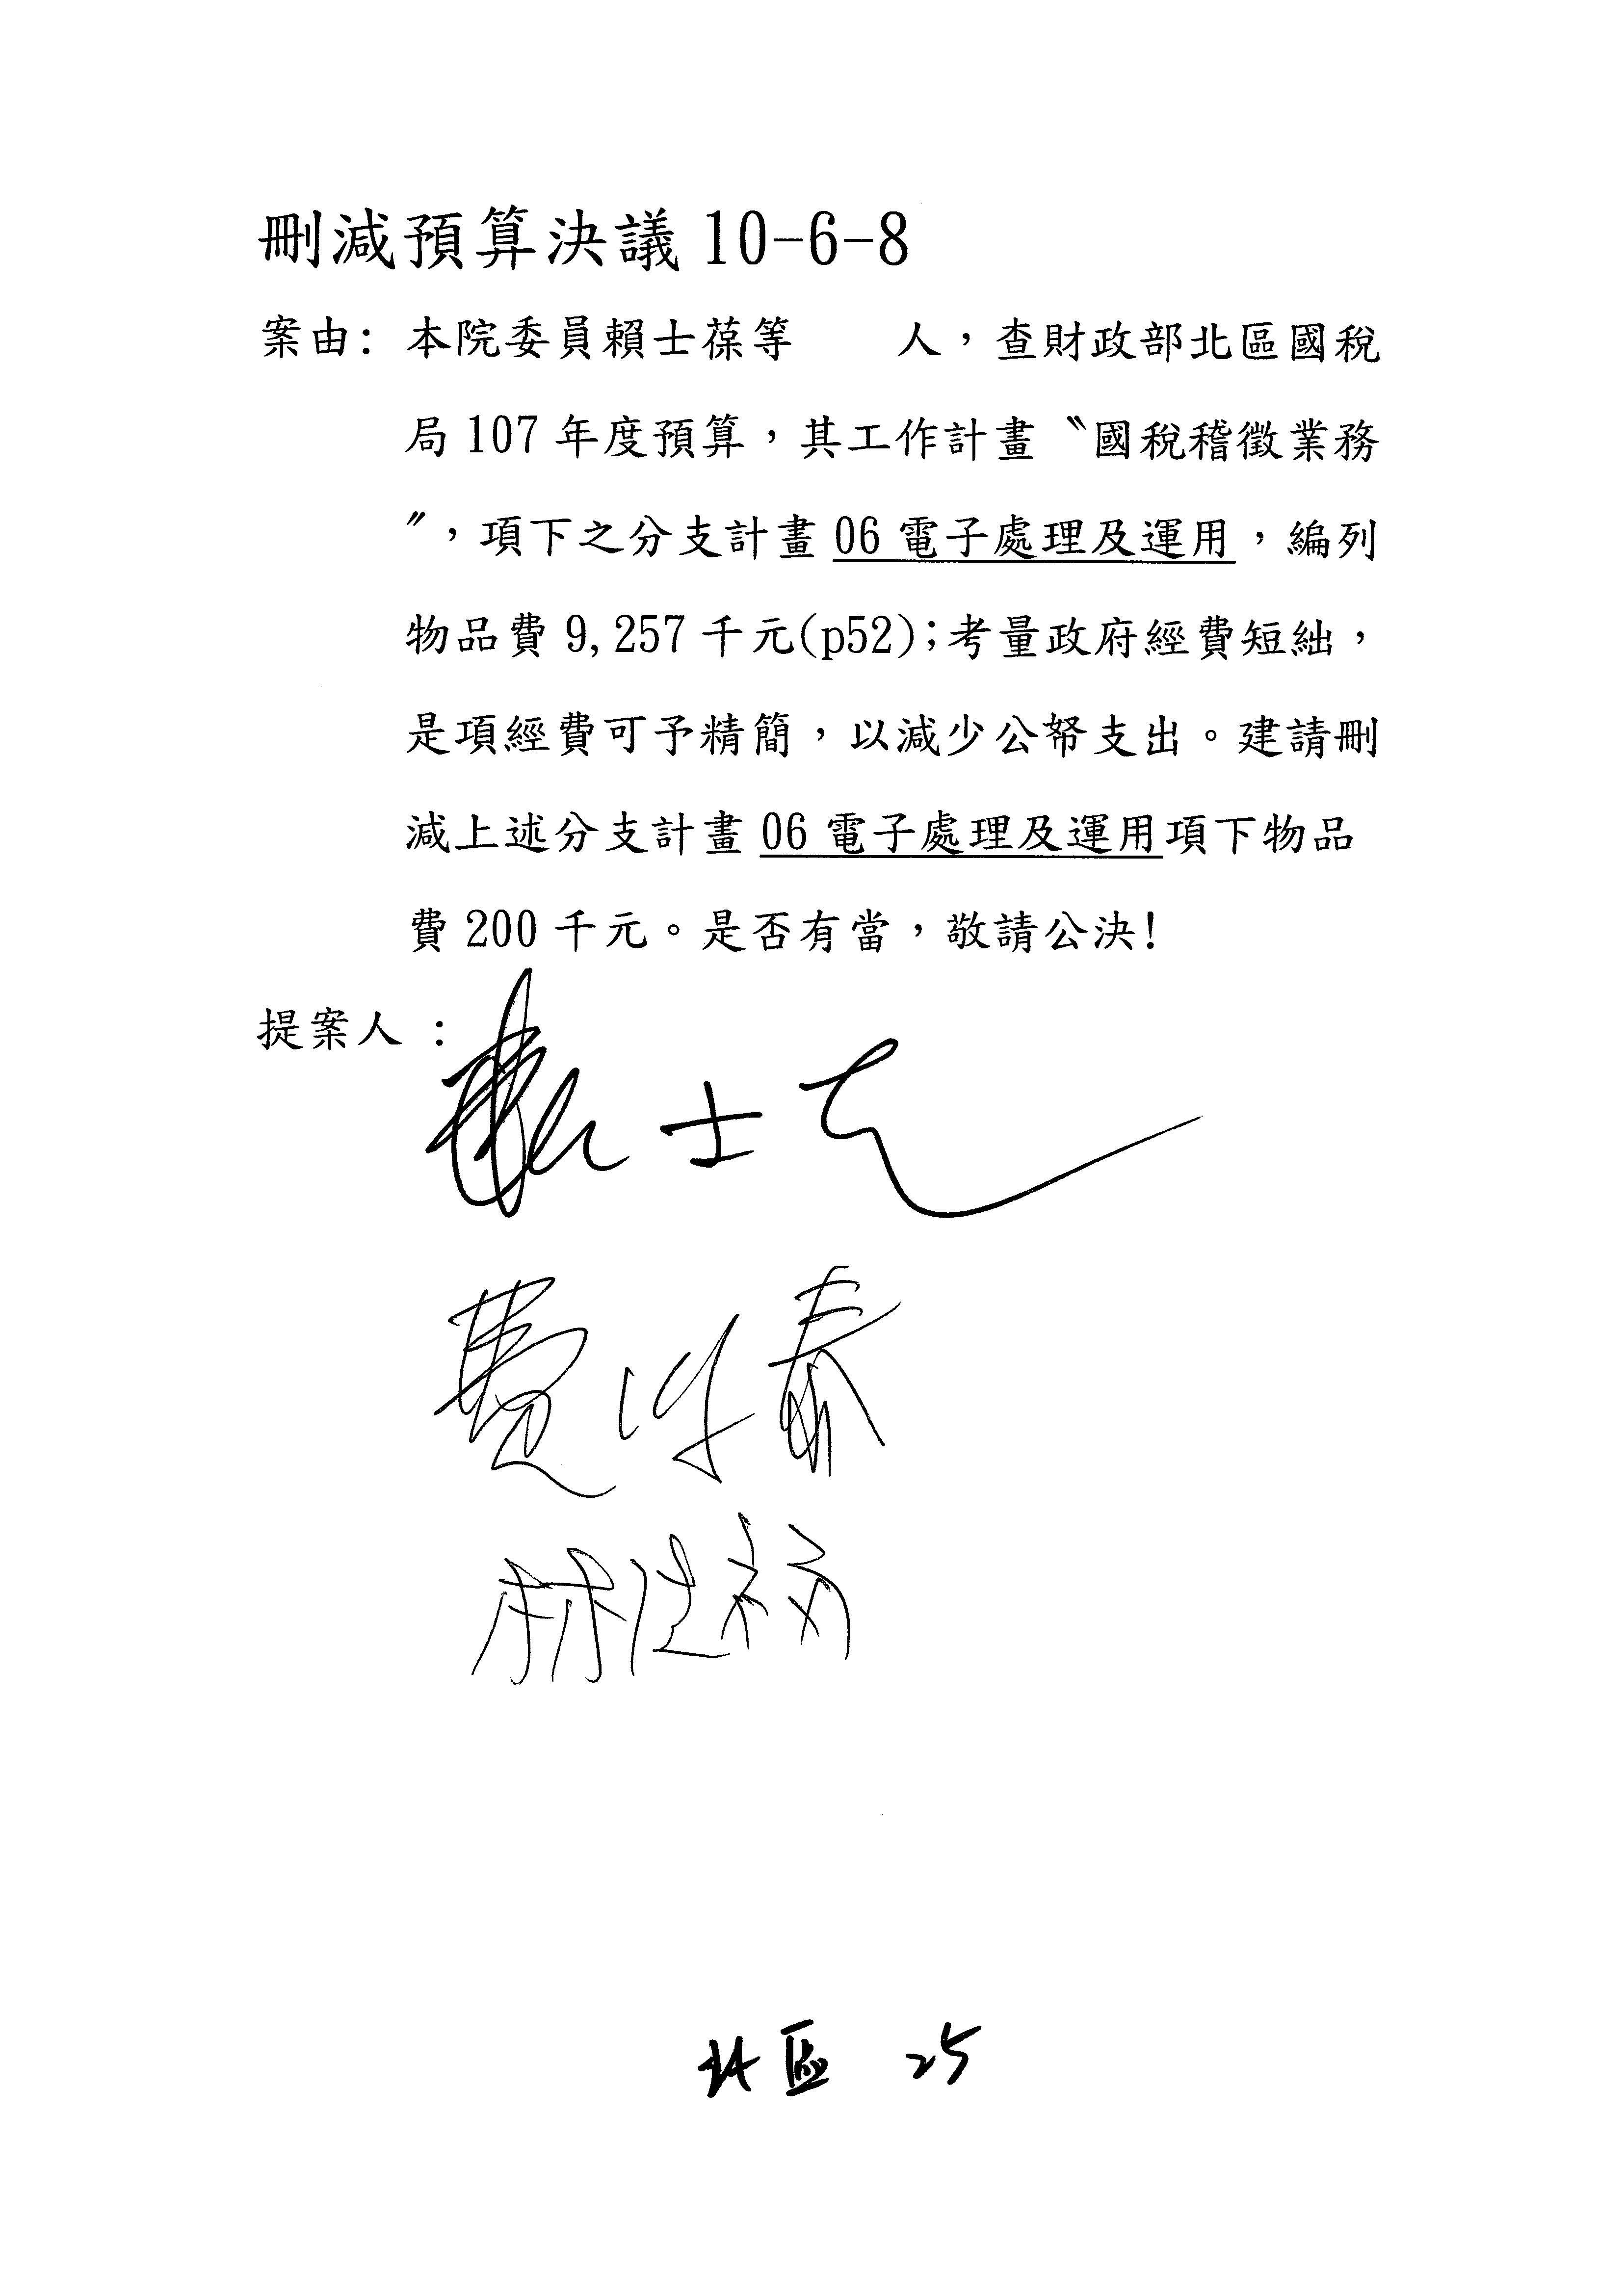 刪減預算決議10-6-8
案由: 本院委員賴士葆等　　人，查財政部北區國稅
局107年度預算，其工作計畫〝國稅稽徵業務
〞，項下之分支計畫06電子處理及運用，編列
物品費9,257千元(p52);考量政府經費短絀，
是項經費可予精簡，以減少公帑支出。建請刪
減上述分支計畫06電子處理及運用項下物品
費200千元。是否有當，敬請公決!
提案人：
費鴻泰
北區 25